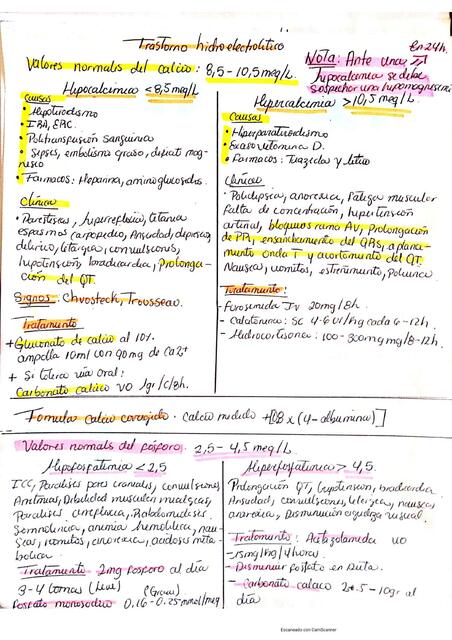 Trastorno hidroelectrolitico
en 24h.
Valores normals del calcio: 8,5 - 10,5 meg/L.
Nota: Ante una
hipocalcemia se debe
sospechar una hipomagnesemia
Hipocalcemia < 8,5 meg/L
Causas
• Hipotiroidismo
• IRA, ERC.
• Politransfusión sanguinea
• Sepsis, embolismo graso, deficit mag-
nesio
• Farmacos: Heparina, aminoglucosidos.
Clínica
- Parestesias, hiperreflexia, tetania
espasmos carpopedio, Ansiedad, depresion,
delirio, letargia, convulsiones,
hipotension, bradicardia, Prolonga-
ción del QT.
Signos: Chvosteck, Trousseau.
Tratamiento
+ Gluconato de calcio al 10%.
ampolla 10ml con 90mg de Ca2+
+ Si tolera via oral:
Carbonato calcico VO 1gr/C/8h.
Hipercalcemia > 10,5 meg/L
Causas
• Hiperparatiroidismo
• Exceso vitamina D.
• Farmacos: Tiazida y litio
Clínica:
- Polidipsia, anorexia, Fatiga muscular
Falta de concentración, hipertensión
arterial, bloqueos rama AV, Prolongación
de PR, ensanchamiento del QRS, aplana-
miento onda T y acortamiento del QT.
Nausea, vomitos, estreñimiento, Poliuria
Tratamiento:
- Furosemida IV 20mg/8h.
- Calcitonina: SC 4-6 UI/Kg cada 6-12h.
- Hidrocortisona: 100-300mg mg/8-12h.
Formula calcio corregido. calcio medido + [0.8 x (4 - albumina)]
Valores normals del fósforo. 2,5 - 4,5 meg/L
Hipofosfatemia < 2,5
ICC, Paralisis pares craneales, convulsiones,
Arritmias, Debilidad muscular mialgias,
Rabdomiolisis,
Somnolencia, anemia hemolitica, nau-
seas, vomitos, anorexia, acidosis meta-
bolica
Tratamiento 2mg fosforo al día
3-4 tomas (leve) (Grave)
Fosfato monosodico 0.16 - 0.25 mmol/meg
Hiperfosfatemia > 4,5
Prolongación QT, hipotension, bradicardia
Ansiedad, convulsiones, letargia, nauseas
anorexia, Disminución agudeza visual.
Tratamiento: Acetazolamida VO
- 15mg/kg/4horas.
- Disminuir fosfato en Dieta.
- Carbonato calcico 2.5-10gr al
día
Escaneado con CamScanner